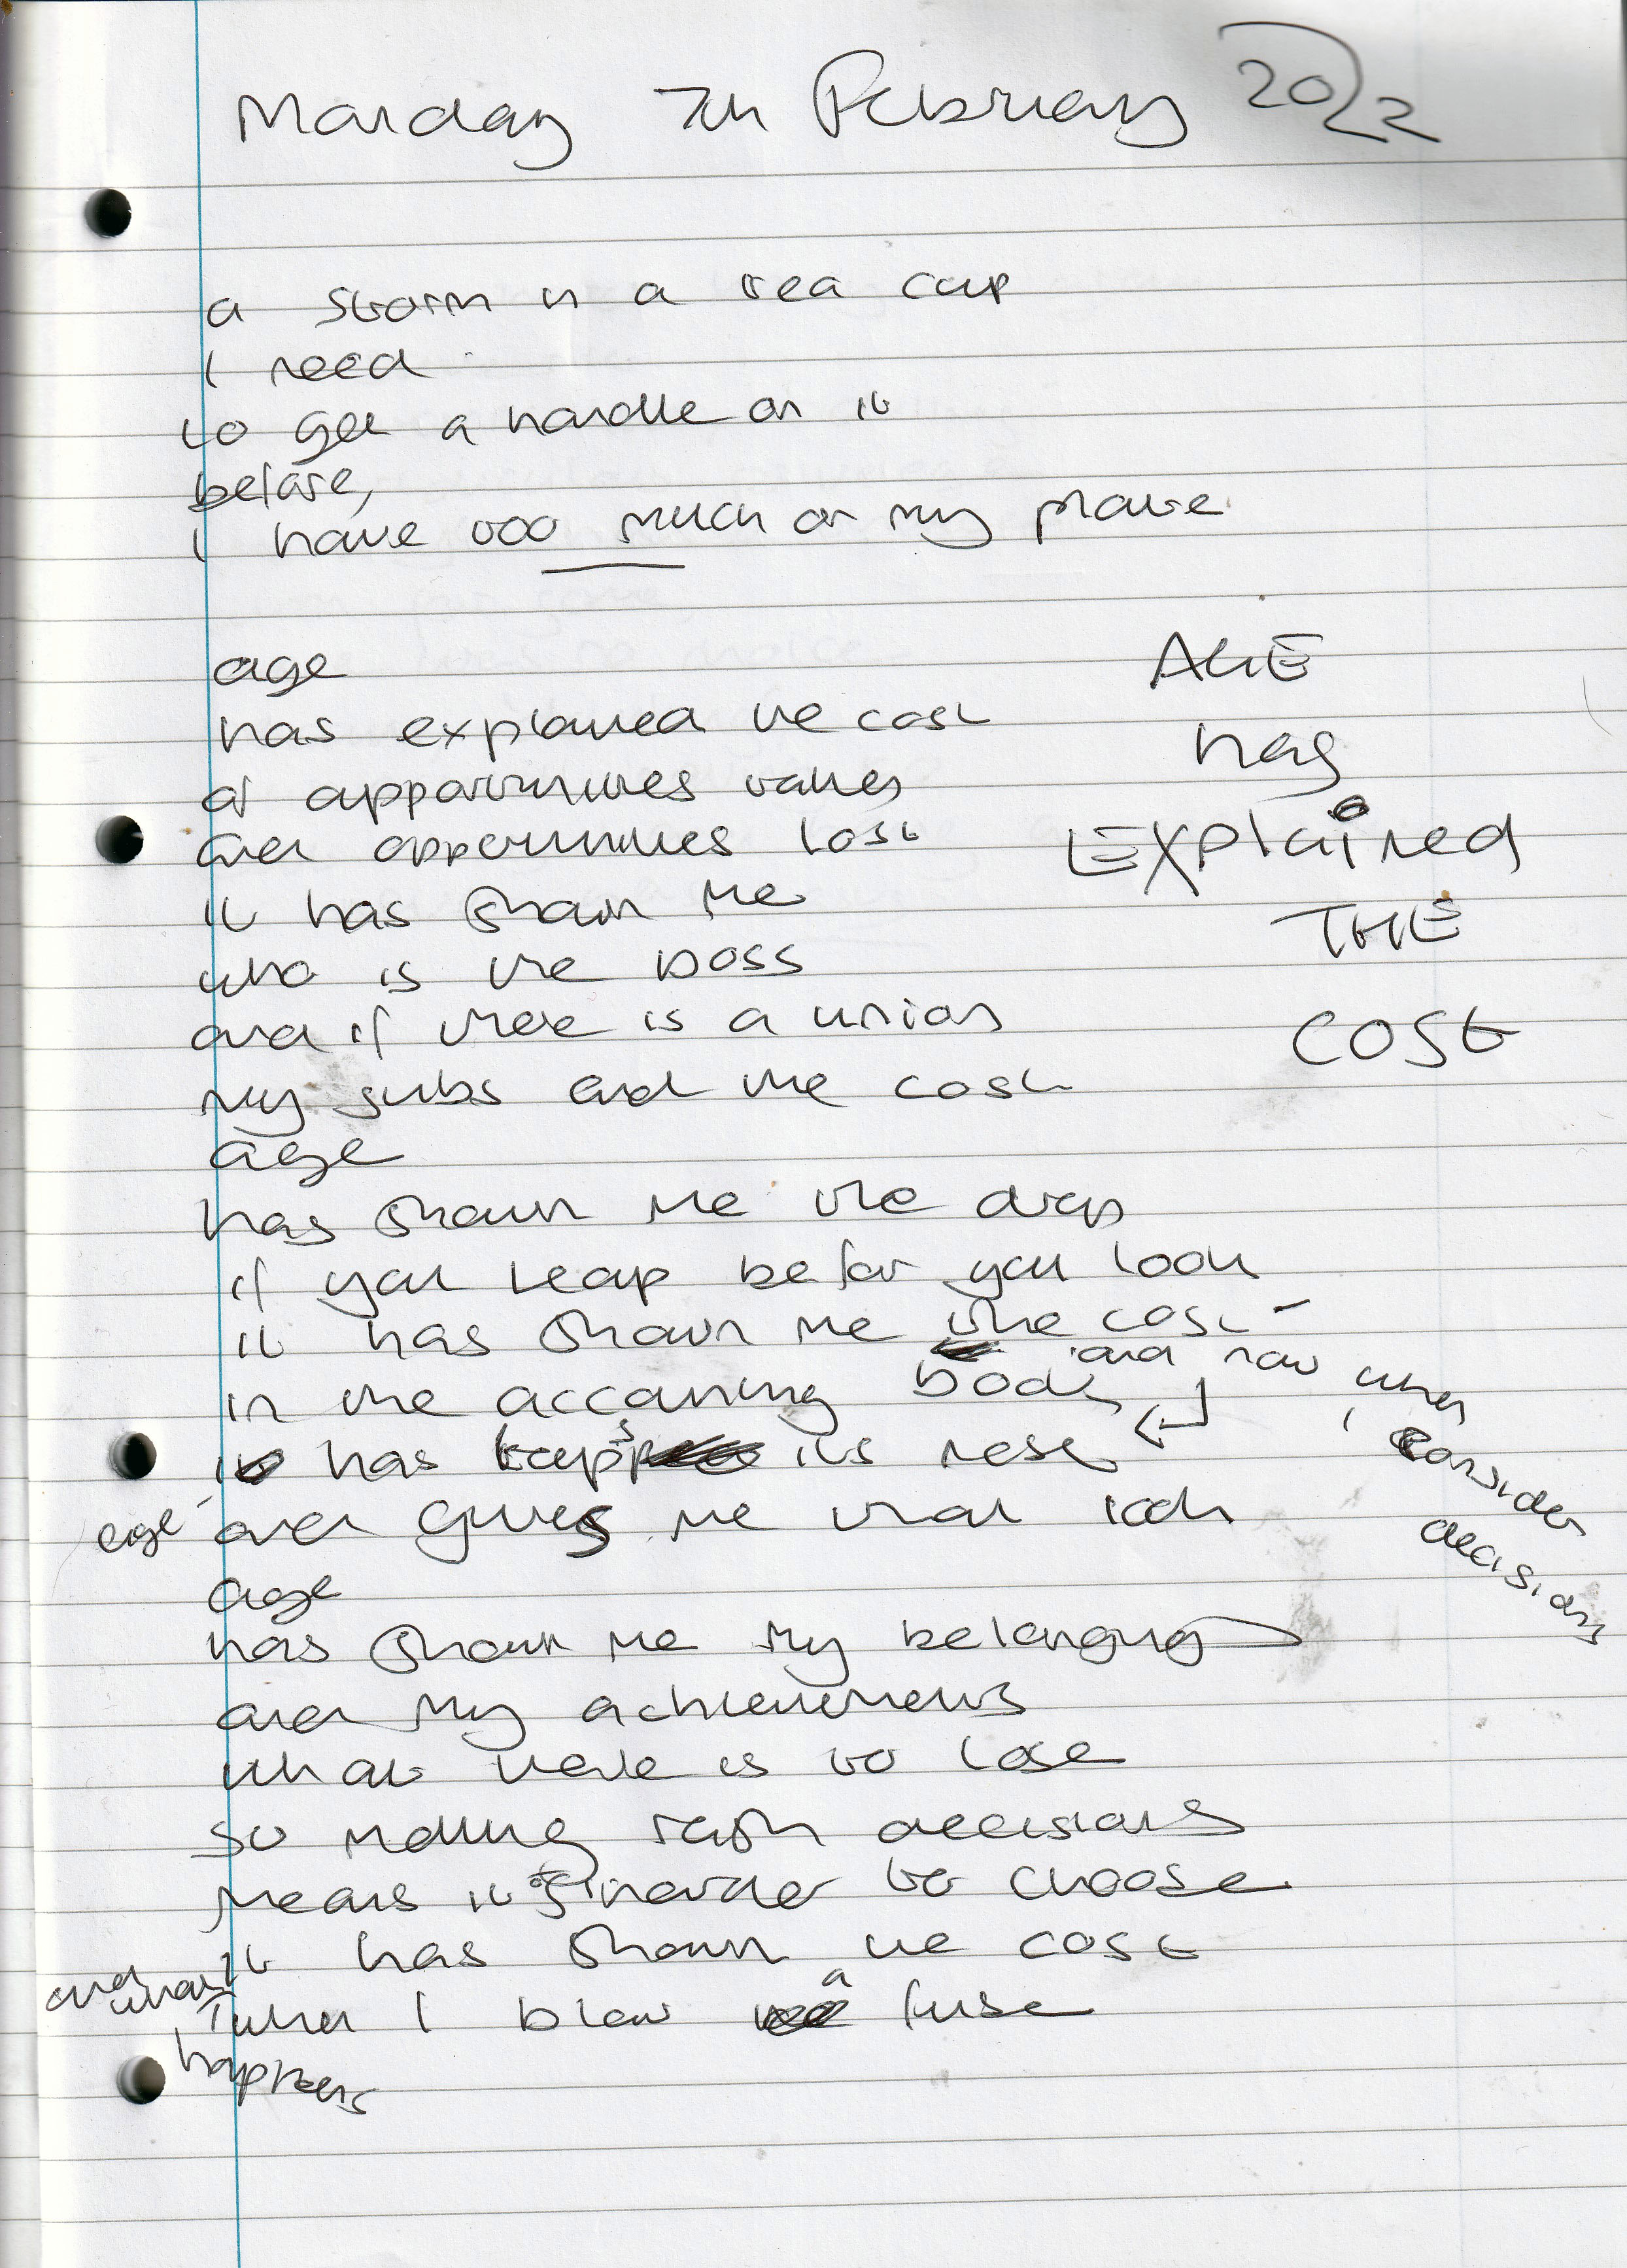 Monday 7th February 2022
a storm in a tea cup
I need
to get a handle on it
before,
I have too much on my plate
age
has explained the cost
of opportunities taken
and oppertunities lost
it has shown me
who is the boss
and if there is a union
my subs and the cost
age
has shown me the drop
if you leap befor you look
it has shown me the cost
in the accounting book
and now when
I consider
decisions
it has taps its nose
age and gives me that look
age
has shown me my belongings
and my achievements
what there is to lose
so making rash decisions
means it's harder to choose
it has shown the cost
and what happens
when I blow a fuse
AGE
has
Explained
THE
COST